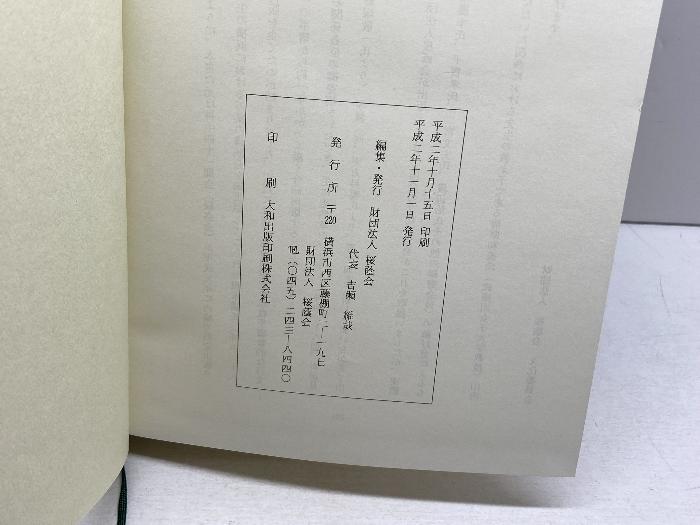 平成二年十月十五日 印刷
平成二年十一月一日 発行
編集・発行 財団法人 桜蔭会
代表 吉
発行所 〒220 横浜市西区藤棚町二ー一九七
財団法人 桜蔭会
電(〇四五)二四三ー八四四〇
印刷 大和出版印刷株式会社